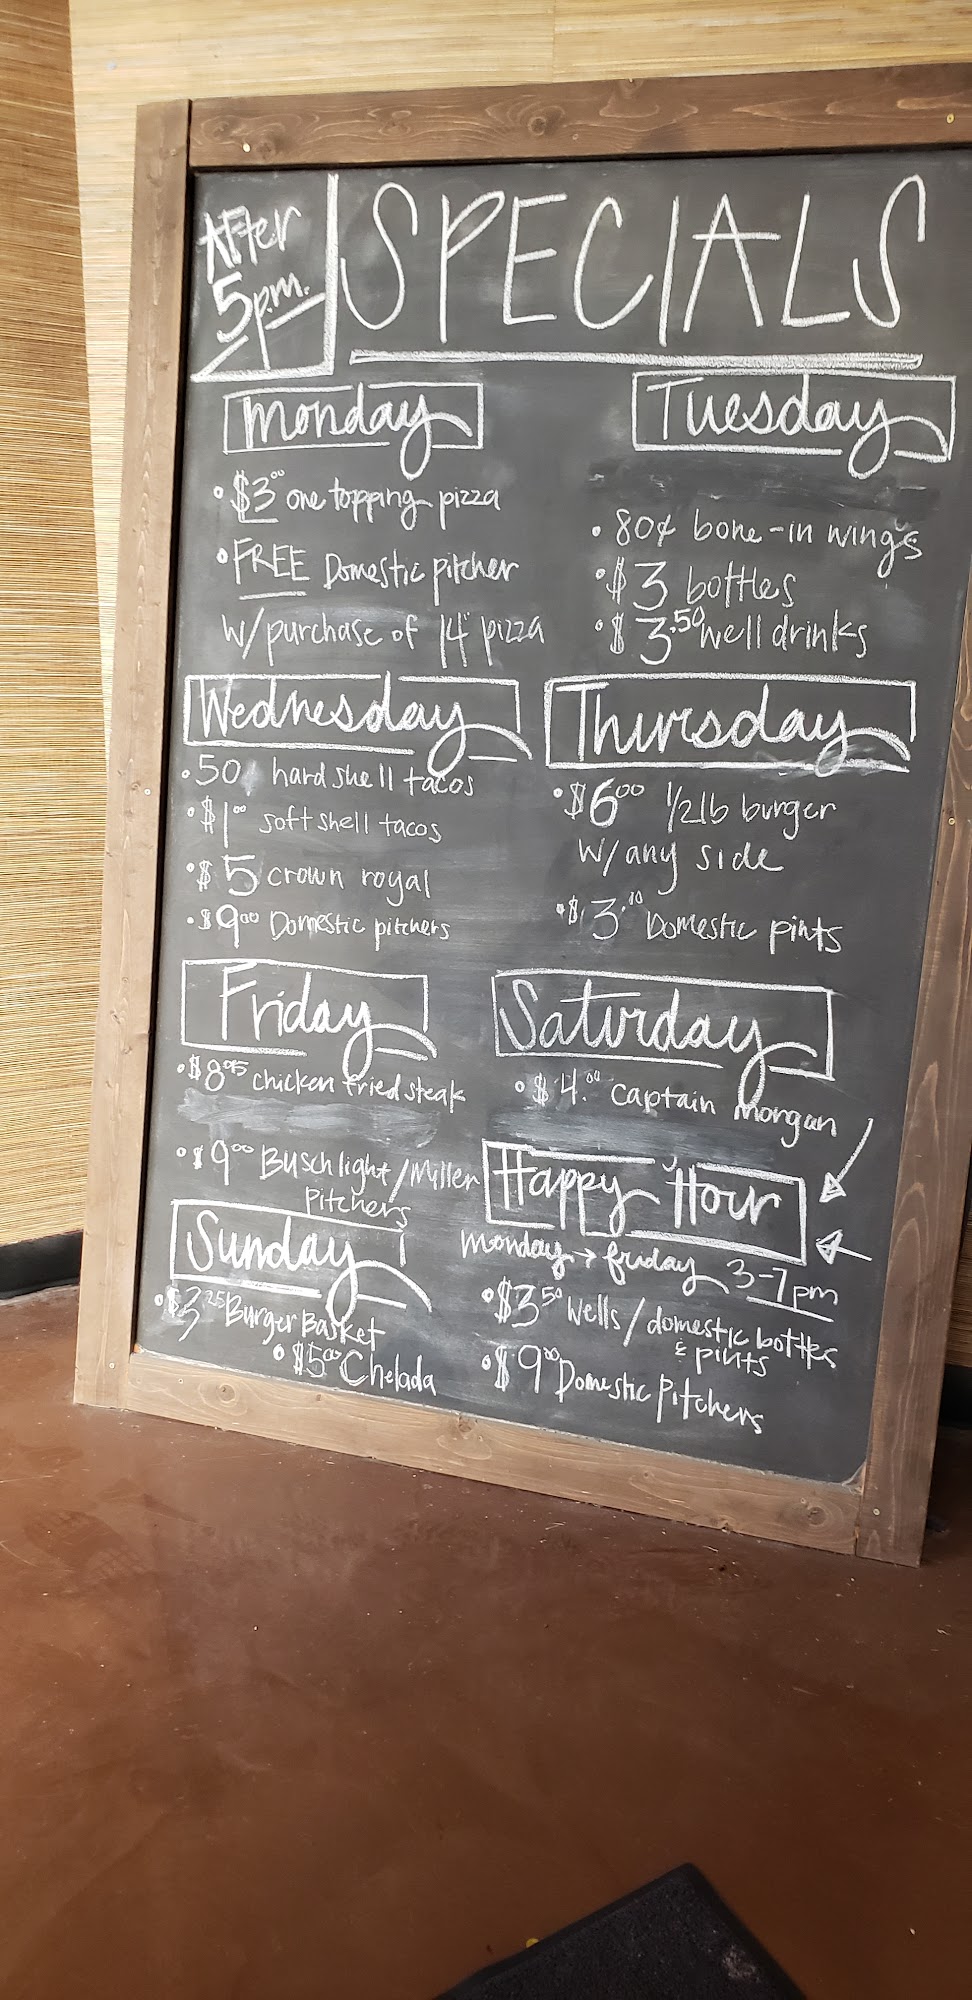 After
5pm.
SPECIALS
Monday
• $3.00 one topping pizza
• FREE Domestic pitcher
w/purchase of 14" pizza
Tuesday
• 80¢ bone-in wings
• $3 bottles
• $3.50 well drinks
Wednesday
• 50¢ hard shell tacos
• $1.00 soft shell tacos
• $5 crown royal
• $9.00 Domestic pitchers
Thursday
• $6.00 1/2lb burger
w/any side
• $3.00 Domestic pints
Friday
• $8.95 chicken fried steak
• $9.00 Busch light/Miller
Pitchers
Saturday
• $4.00 captain morgan
Sunday
• $3.25 Burger Basket
• $5.00 Chelada
Happy Hour
monday → friday 3-7pm
• $3.50 Wells/domestic bottles
& pints
• $9.00 Domestic Pitchers